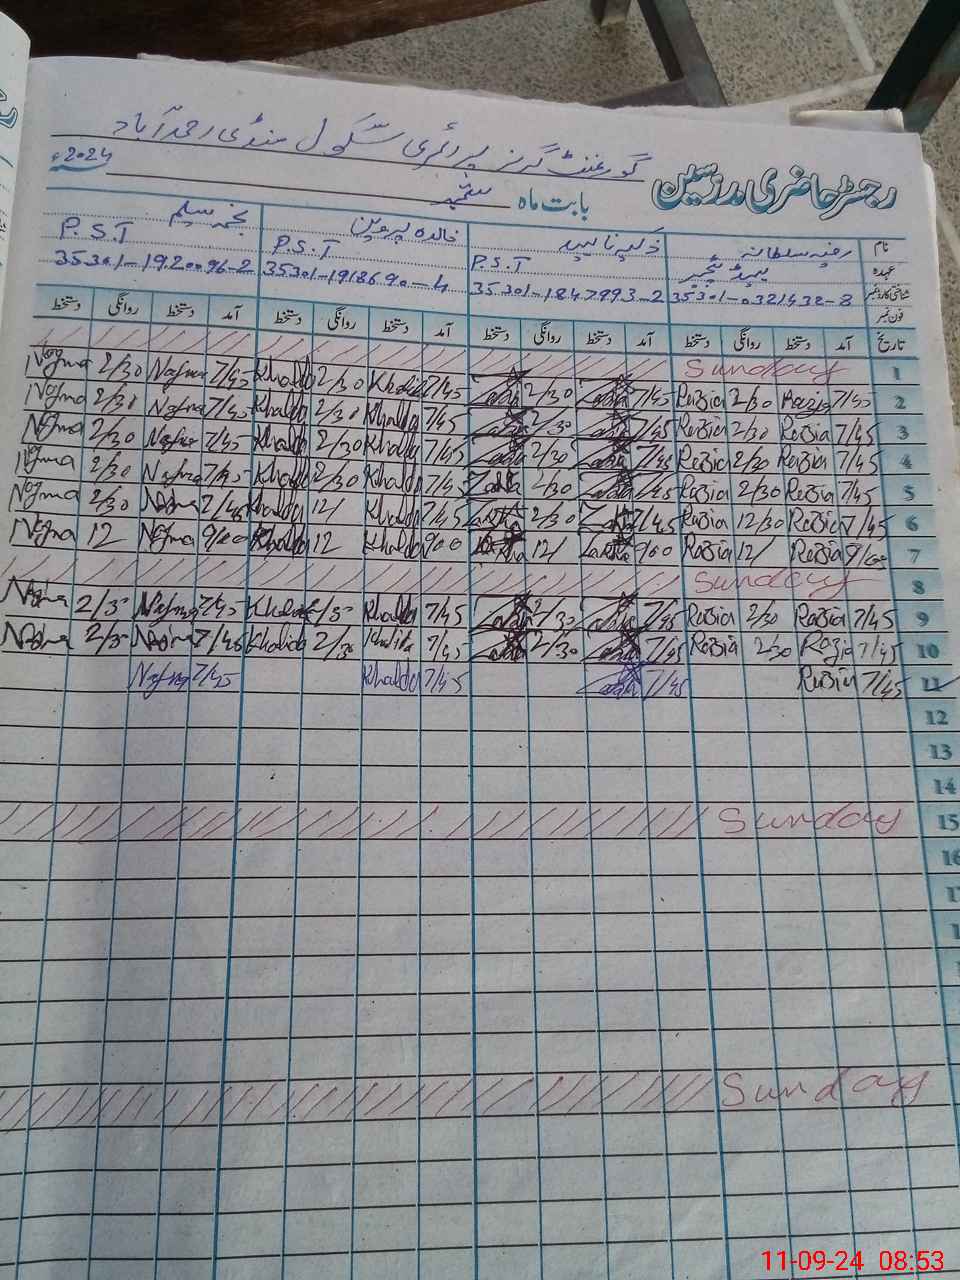 گورنمنٹ گرلز پرائمری سکول منڈی احمد آباد
رجسٹر حاضری مدرسین بابت ماہ ستمبر سنہ 2024ء
نام رضیہ سلطانہ ذکیہ ناہید خالدہ پروین نجمہ سلیم
عہدہ ہیڈ ٹیچر P.S.T P.S.T P.S.T
شناختی کارڈ نمبر 35301-0321432-8 35301-1847993-2 35301-1918690-4 35301-1920096-2
فون نمبر
تاریخ آمد دستخط روانگی دستخط آمد دستخط روانگی دستخط آمد دستخط روانگی دستخط آمد دستخط روانگی دستخط
1 Sunday
2 7/45 Razia 2/30 Razia 7/45 2/30 7/45 Khalida 2/30 Khalida 7/45 Najma 2/30 Najma
3 7/45 Razia 2/30 Razia 7/45 2/30 7/45 Khalida 2/30 Khalida 7/45 Najma 2/30 Najma
4 7/45 Razia 2/30 Razia 7/45 2/30 7/45 Khalida 2/30 Khalida 7/45 Najma 2/30 Najma
5 7/45 Razia 2/30 Razia 7/45 2/30 7/45 Khalida 2/30 Khalida 7/45 Najma 2/30 Najma
6 7/45 Razia 12/30 Razia 7/45 2/30 7/45 Khalida 12/ Khalida 7/45 Najma 2/30 Najma
7 9/00 Razia 12/ Razia 9/00 12/ 9/00 Khalida 12 Khalida 9/00 Najma 12 Najma
8 Sunday
9 7/45 Razia 2/30 Razia 7/45 2/30 7/45 Khalida 2/30 Khalida 7/45 Najma 2/30 Najma
10 7/45 Razia 2/30 Razia 7/45 2/30 7/45 Khalida 2/30 Khalida 7/45 Najma 2/30 Najma
11 7/45 Razia 7/45 7/45 Khalida 7/45 Najma
12
13
14
15 Sunday
16
Sunday
11-09-24 08:53